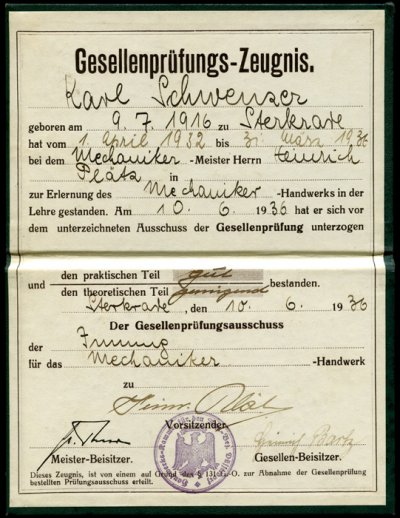 Gesellenprüfungs-Zeugnis.
Karl Schwenser
geboren am 9. 7. 1916 zu Sterkrade
hat vom 1. April 1932 bis 31. März 1936
bei dem Mechaniker -Meister Herrn Heinrich
Plätz in
zur Erlernung des Mechaniker -Handwerks in der
Lehre gestanden. Am 10. 6. 1936 hat er sich vor
dem unterzeichneten Ausschuss der Gesellenprüfung unterzogen
und den praktischen Teil gut
den theoretischen Teil genügend bestanden.
Sterkrade, den 10. 6. 1936
Der Gesellenprüfungsausschuss
der Innung
für das Mechaniker -Handwerk
zu
Heinr.
Vorsitzender.
Meister-Beisitzer.
Gesellen-Beisitzer.
Dieses Zeugnis, ist von einem auf Grund des § 131 G.-O. zur Abnahme der Gesellenprüfung
bestellten Prüfungsausschuss erteilt.